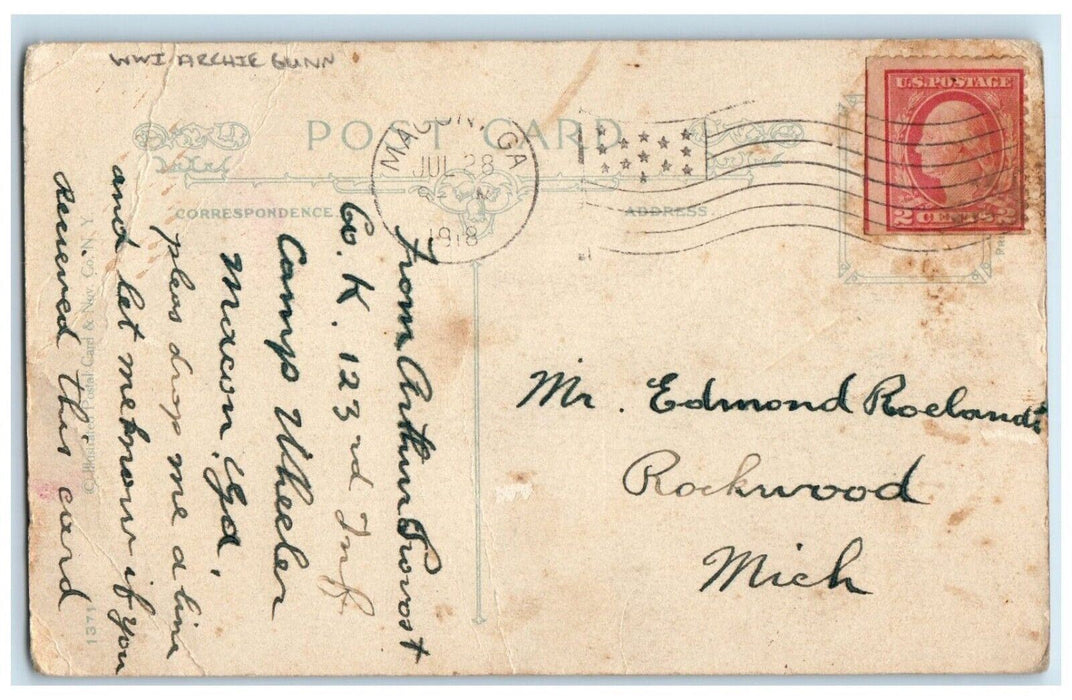 WWI ARCHIE GUNN
POST CARD
MACON, GA
JUL 28
M
1918
U.S. POSTAGE
2 CENTS 2
CORRESPONDENCE
ADDRESS
From Arthur Provost
Co. K. 123rd Inf.
Camp Wheeler
Macon, Ga,
pleas drop me a line
and let me know if you
received this card
Mr. Edmond Roelands
Rockwood
Mich
© Illustrated Postal Card & Nov. Co. N. Y.
1371